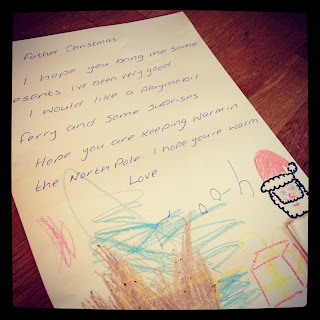 Father Christmas
I hope you bring me some
esents I've been very good.
I would like a playmobil
ferry and some surprises
Hope you are keeping warm in
the North Pole. I hope you're warm
Love
Noah